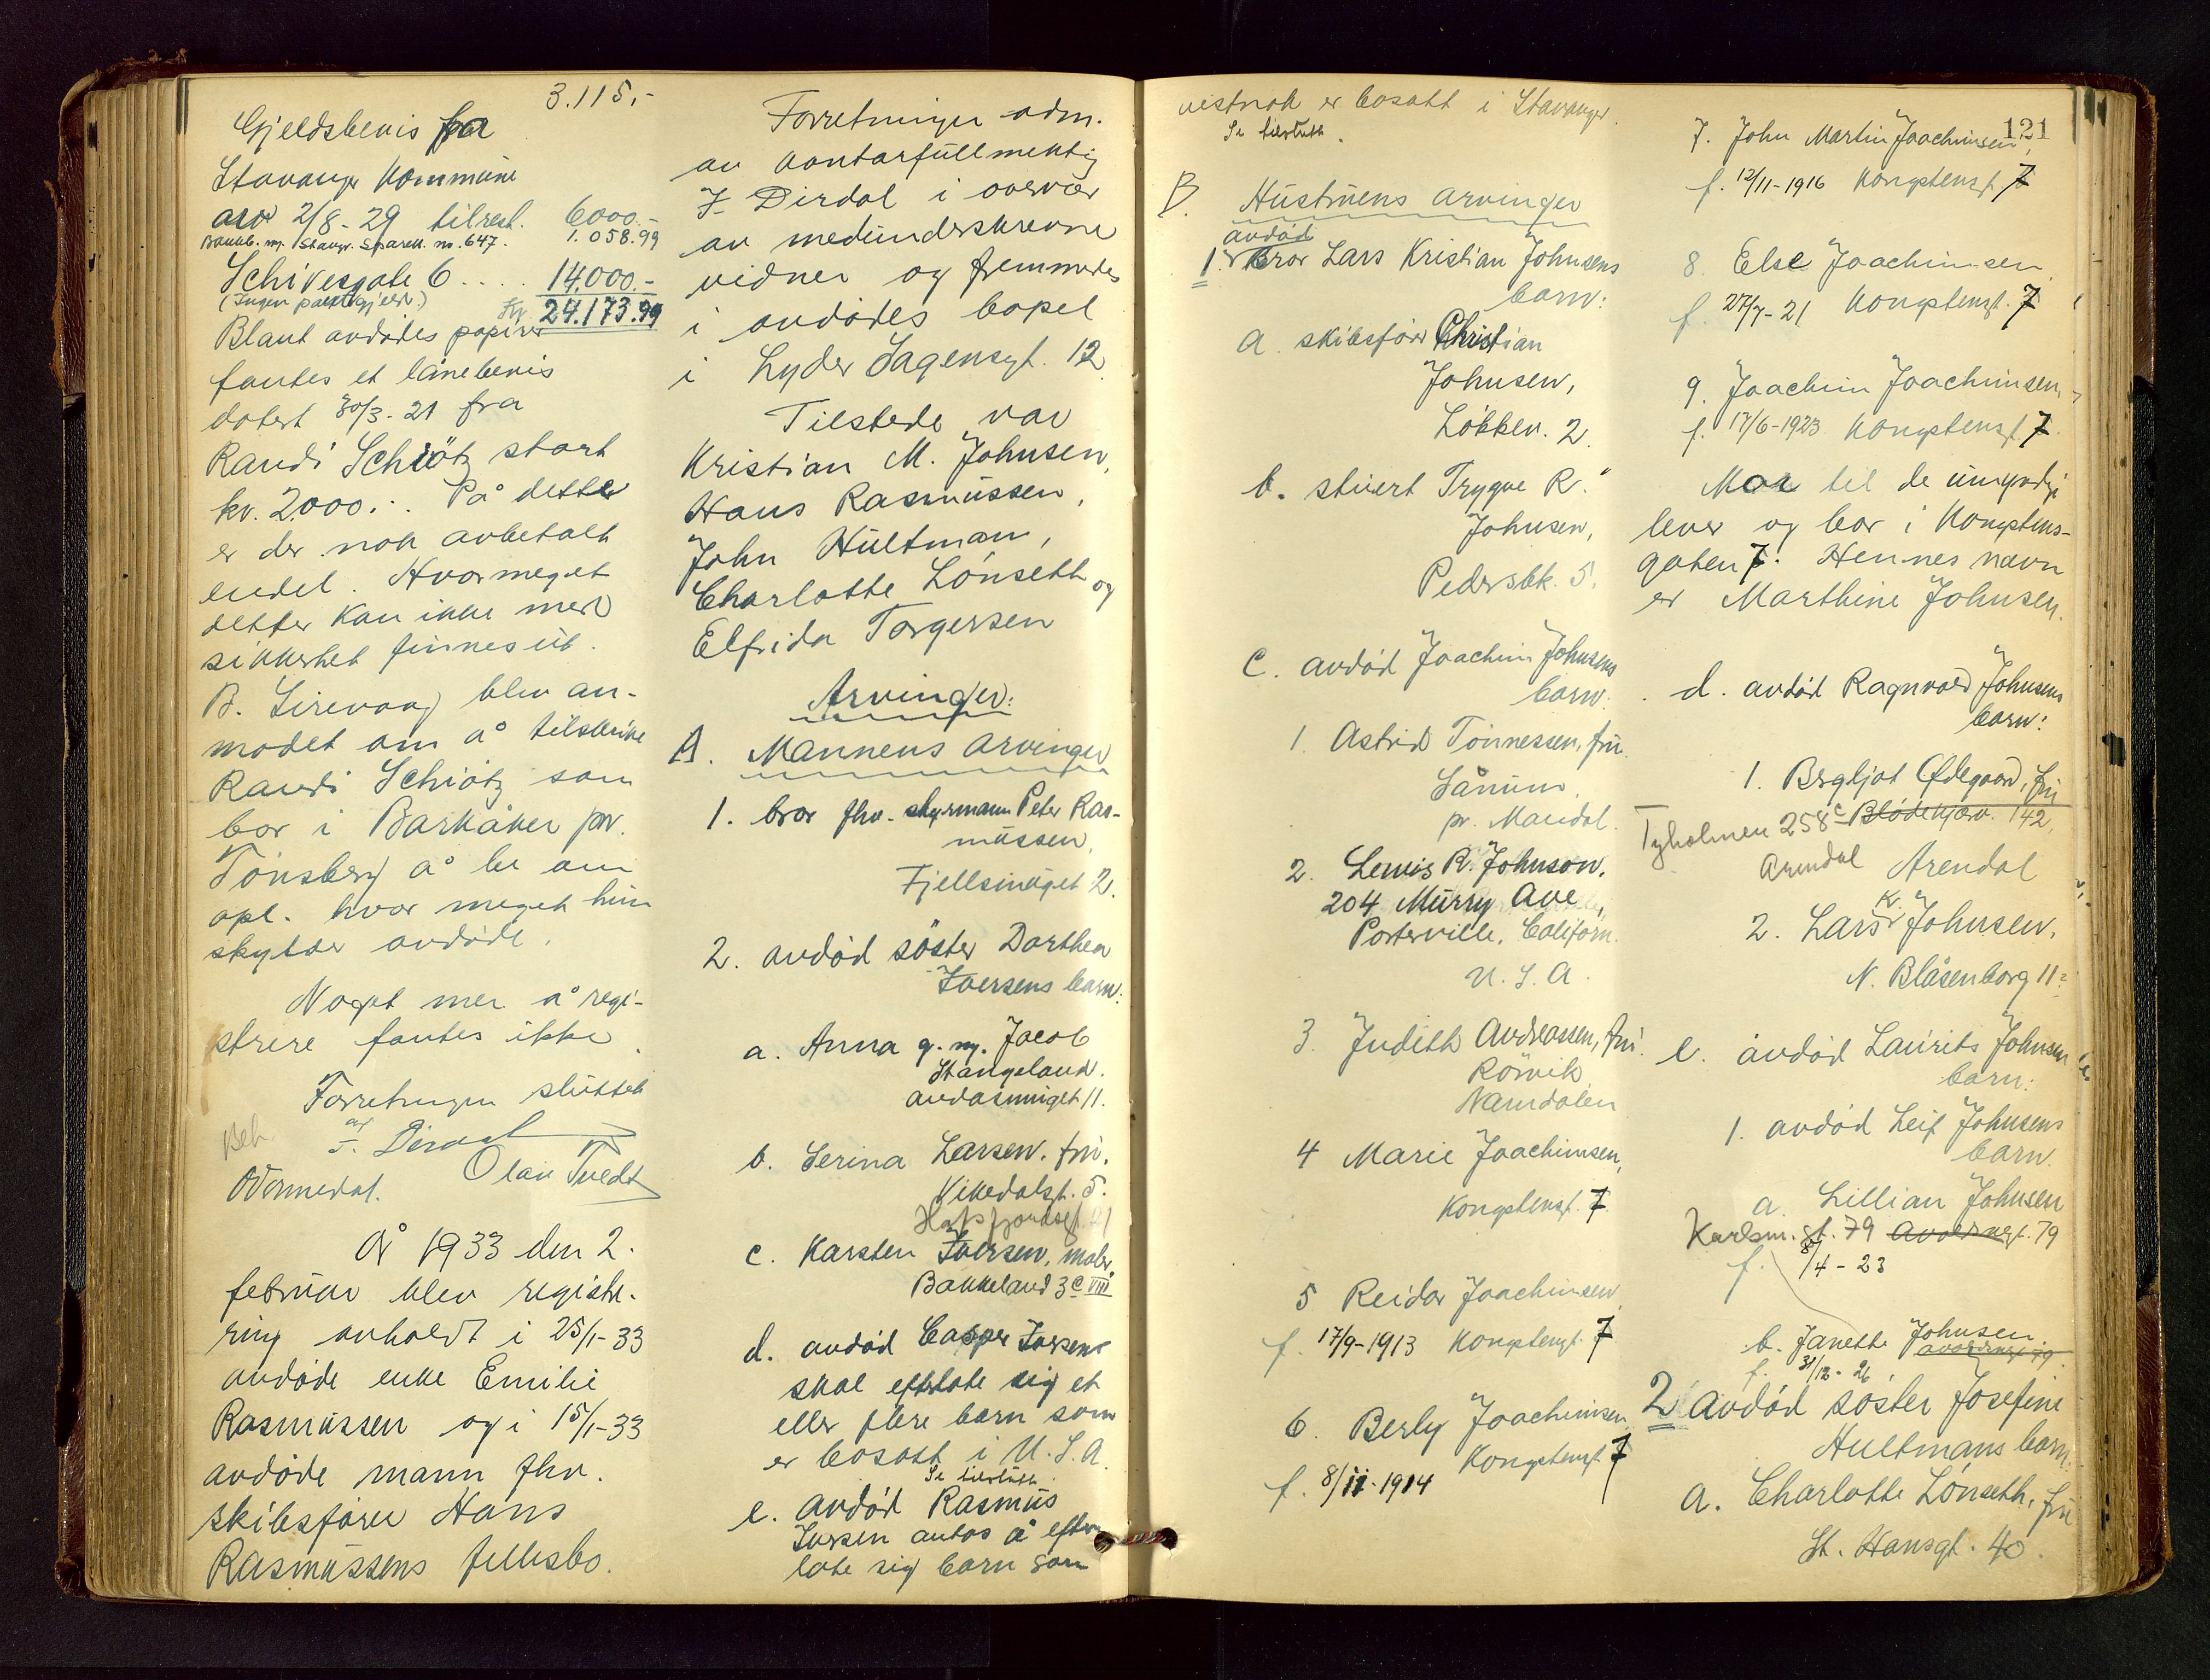 3.115,-
Gjeldsbevis fra
Stavanger Kommune
av 2/8-29 tilrest. 6000.-
Bankb. no. Stavgr. Sparek. no. 647. 1.058.99
Schivesgate 6 .... 14.000.-
(Ingen pantegjeld.) Kr. 24.173.99
Blant avdødes papirer
fantes et lånebevis
datert 30/3-21 fra
Randi Schiötz stort
kr. 2000.-. På dette
er der nok avbetalt
endel. Hvormeget
dette kan ikke med
sikkerhet finnes ut.
B. Sirevaag blev an-
modet om å tilskrive
Randi Schiötz som
bor i Barkåker pr.
Tönsberg å be om
opl. hvor meget hun
skylder avdöde.
Noget mer å regi-
strere fantes ikke.
Forretningen sluttet
F. Dirdal
Beh.
Olav Tvedt
År 1933 den 2.
februar blev registre-
ring avholdt i 25/1-33
avdöde enke Emilie
Rasmussen og i 15/1-33
avdöde mann fhv.
skibsförer Hans
Rasmussens fellesbo.
Forretningen adm.
av kontorfullmektig
F. Dirdal i overvær
av medunderskrevne
vidner og fremmedes
i avdödes bopel
i Lyder Sagensgt. 12
Tilstede var
Kristian M. Johnsen,
Hans Rasmussen,
John Hultman,
Charlotte Lönseth og
Elfrida Torgersen
Arvinger:
A. Mannens arvinger
1. bror fhv. styrmann Peter Ras-
mussen,
Fjellsmuget 2.
2. avdöd söster Dorthea
Iversens barn:
a. Anna g. m. Jacob
Stangeland.
Andasmuget 11.
b. Serina Larsen. fru.
Vikedalsgt. 5.
Hafsfjordsgt. 21
c. Karsten Iversen, maler.
Bakkeland 3c VIII
d. avdöd Casper Iversen
skal efterlate sig et
eller flere barn som
er bosatt i U.S.A.
Se tilslutt.
e. avdöd Rasmus
Iversen antas å efter
late sig barn som
vistnok er bosatt i Stavanger.
Se tilslutt.
121
B. Hustruens arvinger
avdöd
1. Bror Lars Kristian Johnsens
barn:
a. skibsförer Christian
Johnsen,
Løkkev. 2.
b. stuert Trygve R.
Johnsen,
Pedersbk. 5.
c. avdöd Joachim Johnsens
barn.
1. Astrid Tönnessen, fru.
Sånum,
pr. Mandal.
2. Lewis R. Johnson,
204 Murry Ave.,
Porterville, Californ.
U.S.A.
3. Judith Andreassen, fru.
Rörvik
Namdalen
4 Marie Joachimsen,
Kongstensgt. 7
5 Reidar Joachimsen
f. 17/9-1913 Kongstensgt. 7
6. Berly Joachimsen
Kongstensgt. 7
f. 8/11-1914
7. John Martin Joachimsen,
f. 12/11-1916 Kongstensgt. 7
8. Else Joachimsen
f. 27/7-21 Kongstensgt. 7
9. Joachim Joachimsen,
f. 17/6-1923 Kongstensgt. 7
Mor til de umyndige
lever og bor i Kongstens-
gaten 7. Hennes navn
er Marthine Johnsen.
d. avdöd Ragnvald Johnsens
barn:
1. Bergljot Ødegaard, fru
Tyholmen 258c Blødekjær. 142,
Arendal Arendal
2. Lars Kr. Johnsen,
N. Blåsenborg 11
e. avdöd Laurits Johnsen
barn:
1. avdöd Leif Johnsens
barn.
a. Lillian Johnsen
Karlsm. gt. 79 Avaldsnesgt. 79
f. 8/4-23
b. Janette Johnsen.
Avaldsnesgt. 79
f. 31/12-26
2 Avdöd söster Josefine
Hultmans barn.
a. Charlotte Lönseth, fru
St. Hansgt. 40.